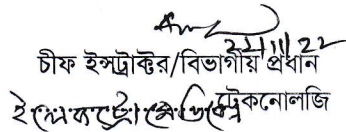 22/11/22
চীফ ইন্সট্রাক্টর/বিভাগীয় প্রধান
ইলেকট্রোমেডিকেল টেকনোলজি